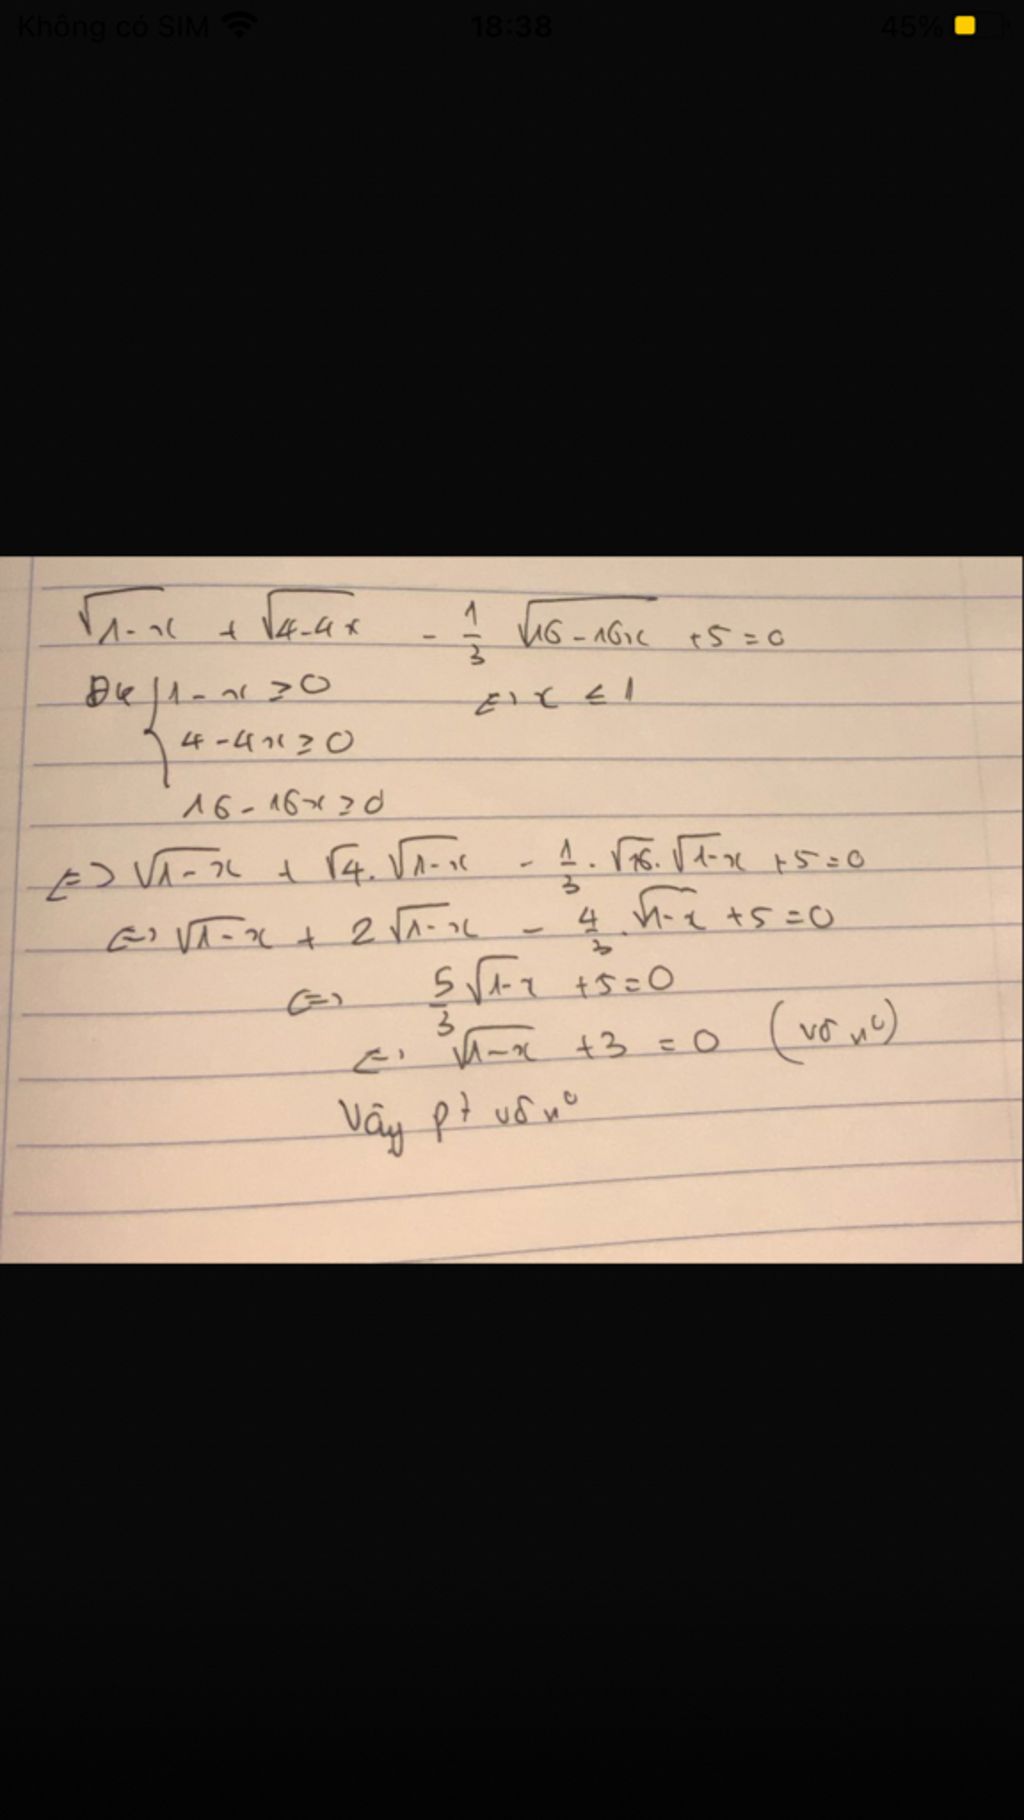 Không có SIM 18:38 45%
√1-x + √4-4x - 1/3 √16-16x +5=0
Đk { 1-x ≥ 0 <=> x ≤ 1
4-4x ≥ 0
16-16x ≥ 0
<=> √1-x + √4.√1-x - 1/3.√16.√1-x +5=0
<=> √1-x + 2√1-x - 4/3.√1-x +5=0
<=> 5/3 √1-x +5=0
<=> √1-x +3 = 0 (vô n⁰)
Vây pt vô n⁰